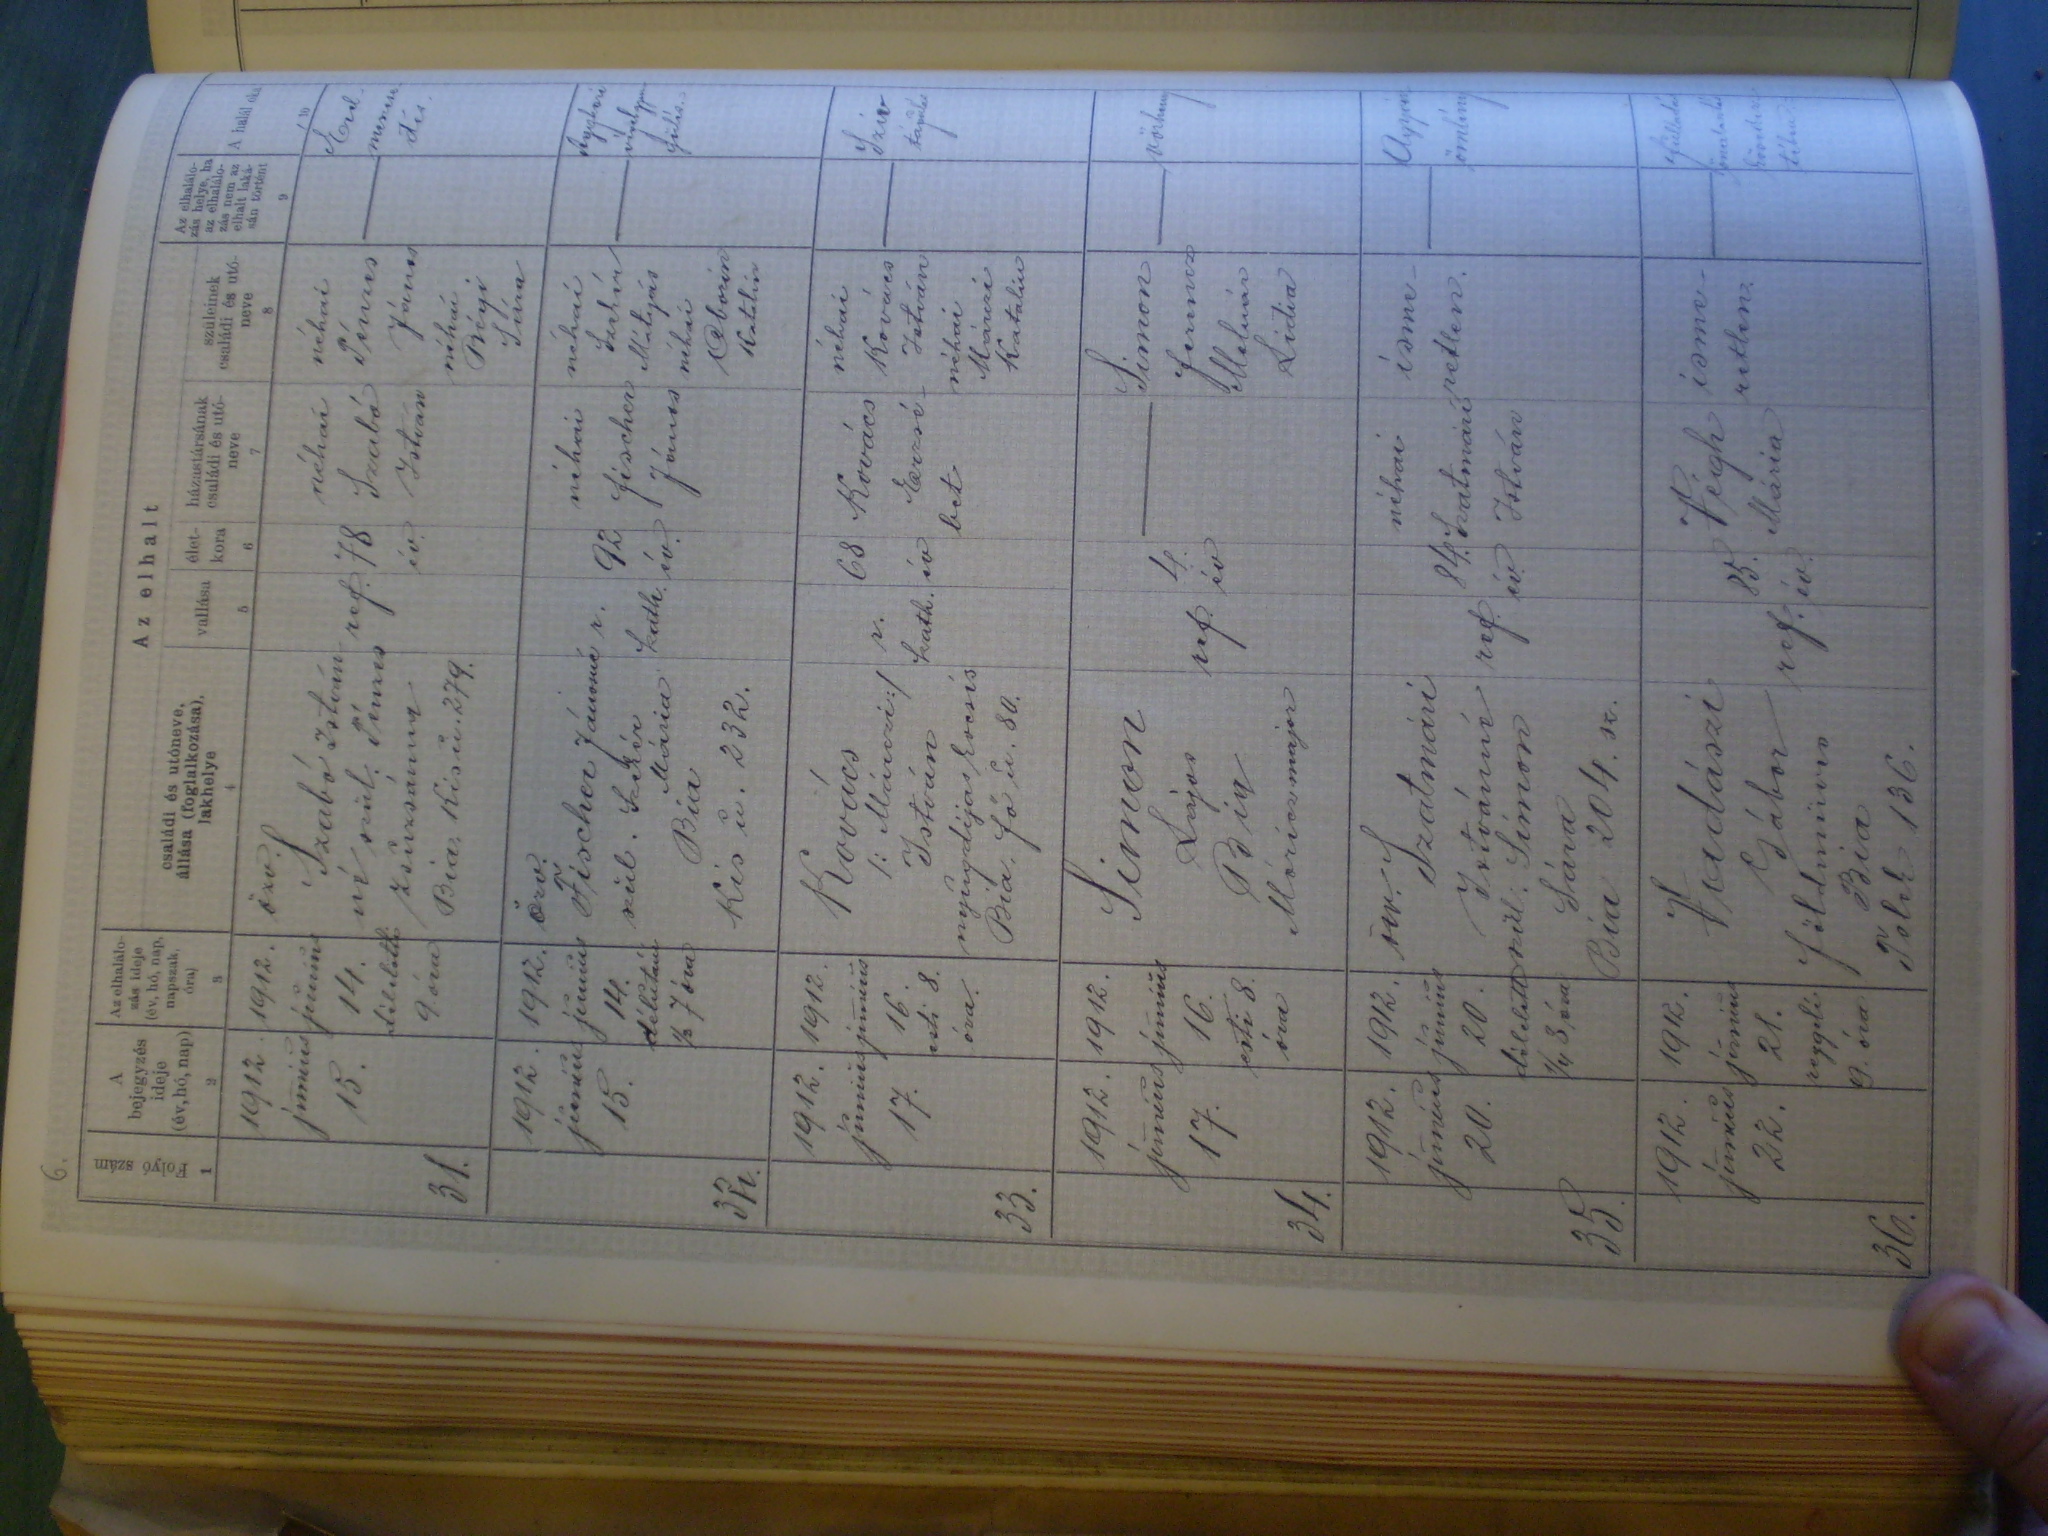 6.
Az elhalt
Folyó szám
A bejegyzés ideje (év, hó, nap)
Az elhalálozás ideje (év, hó, nap, napszak, óra)
családi és utóneve, állása (foglalkozása), lakhelye
vallása
életkora
házastársának családi és utóneve
szüleinek családi és utóneve
Az elhalálozás helye, ha az elhalálozás nem az elhalt lakásán történt
A halál oka
1
2
3
4
5
6
7
8
9
10
31.
1912.
június
15.
1912.
június
14.
délelőtt
9 óra
özv.
Szabó István
né szül. Pénzes
Zsuzsánna
Bia. Kis u. 279.
ref.
78
év.
néhai
Szabó
István
néhai
Pénzes
János
néhai
Bégi
Sára
32.
1912.
június
15.
1912.
június
14.
délután
½ 7 óra
özv.
Fischer Jánosné
szül.
Mária
Bia
Kis u. 232.
r.
kath.
92
év.
néhai
Fischer
János
néhai
Mátyás
néhai
Katalin
33.
1912.
június
17.
1912.
június
16.
esti 8.
óra.
Kovács
/: Mánczi :/
István
nyugdíjas kocsis
Bia. Fő u. 80.
r.
kath.
68
év
Kovács
Erzsé-
bet
néhai
Kovács
István
néhai
Mánczi
Katalin
Szív
34.
1912.
június
17.
1912.
június
16.
esti 8.
óra
Simon
Lajos
Bia
Móriczmajor
ref.
4.
év
Simon
Ferencz
Molnár
Lidia
35.
1912.
június
20.
1912.
június
20.
délelőtt
¼ 3 óra
özv.
Szatmári
Istvánné
szül. Simon
Sára
Bia 204. sz.
ref.
84.
év.
néhai
Szatmári
István
isme-
retlen.
Agyvér
ömlény
36.
1912.
június
22.
1912.
június
21.
reggeli
9. óra
Vadászi
Gábor
földmives
Bia
136.
ref.
85.
év.
Végh
Mária
isme-
retlen.